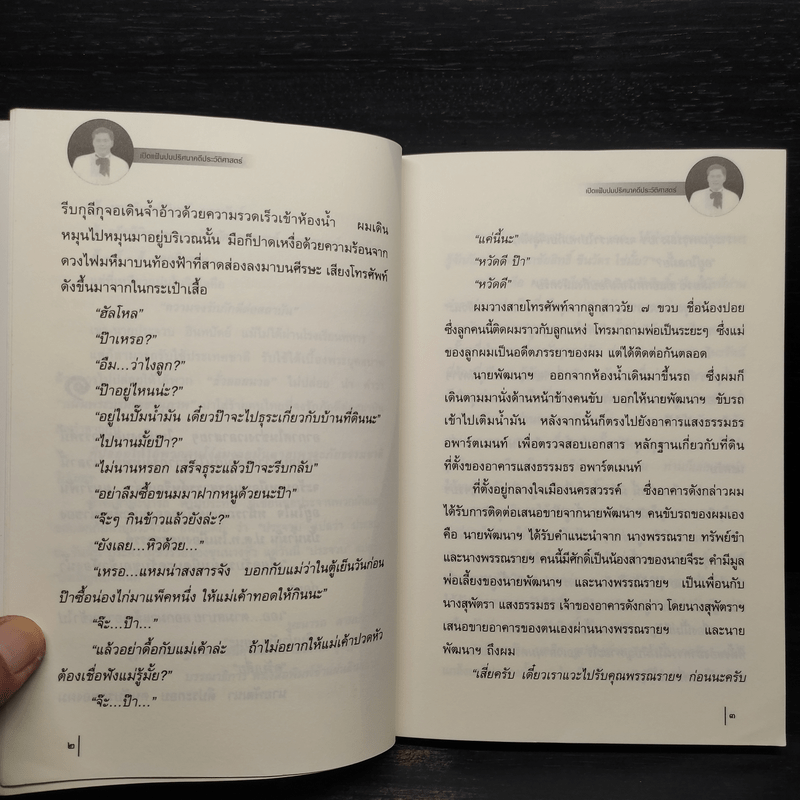 เปิดแฟ้มปมปริศนาคดีประวัติศาสตร์
รีบกุลีกุจอเดินจ้ำอ้าวด้วยความรวดเร็วเข้าห้องน้ำ ผมเดิน
หมุนไปหมุนมาอยู่บริเวณนั้น มือก็ปาดเหงื่อด้วยความร้อนจาก
ดวงไฟมหึมาบนท้องฟ้าที่สาดส่องลงมาบนศีรษะ เสียงโทรศัพท์
ดังขึ้นมาจากในกระเป๋าเสื้อ
“ฮัลโหล”
“ป๊าเหรอ?”
“อืม...ว่าไงลูก?”
“ป๊าอยู่ไหนน่ะ?”
“อยู่ในปั๊มน้ำมัน เดี๋ยวป๊าจะไปธุระเกี่ยวกับบ้านที่ดินนะ”
“ไปนานมั้ยป๊า?”
“ไม่นานหรอก เสร็จธุระแล้วป๊าจะรีบกลับ”
“อย่าลืมซื้อขนมมาฝากหนูด้วยนะป๊า”
“จ๊ะๆ กินข้าวแล้วยังล่ะ?”
“ยังเลย...หิวด้วย...”
“เหรอ...แหมน่าสงสารจัง บอกกับแม่ว่าในตู้เย็นวันก่อน
ป๊าซื้อน่องไก่มาแพ็คหนึ่ง ให้แม่เค้าทอดให้กินนะ”
“จ๊ะ...ป๊า...”
“แล้วอย่าดื้อกับแม่เค้าล่ะ ถ้าไม่อยากให้แม่เค้าปวดหัว
ต้องเชื่อฟังแม่รู้มั้ย?”
“จ๊ะ...ป๊า...”
๒
เปิดแฟ้มปมปริศนาคดีประวัติศาสตร์
“แค่นี้นะ”
“หวัดดี ป๊า”
“หวัดดี”
ผมวางสายโทรศัพท์จากลูกสาววัย ๗ ขวบ ชื่อน้องปอย
ซึ่งลูกคนนี้ติดผมราวกับลูกแหง่ โทรมาถามพ่อเป็นระยะๆ ซึ่งแม่
ของลูกผมเป็นอดีตภรรยาของผม แต่ได้ติดต่อกันตลอด
นายพัฒนาฯ ออกจากห้องน้ำเดินมาขึ้นรถ ซึ่งผมก็
เดินตามมานั่งด้านหน้าข้างคนขับ บอกให้นายพัฒนาฯ ขับรถ
เข้าไปเติมน้ำมัน หลังจากนั้นก็ตรงไปยังอาคารแสงธรรมธร
อพาร์ตเมนท์ เพื่อตรวจสอบเอกสาร หลักฐานเกี่ยวกับที่ดิน
ที่ตั้งของอาคารแสงธรรมธร อพาร์ตเมนท์
ที่ตั้งอยู่กลางใจเมืองนครสวรรค์ ซึ่งอาคารดังกล่าวผม
ได้รับการติดต่อเสนอขายจากนายพัฒนาฯ คนขับรถของผมเอง
คือ นายพัฒนาฯ ได้รับคำแนะนำจาก นางพรรณราย ทรัพย์ขำ
และนางพรรณรายฯ คนนี้มีศักดิ์เป็นน้องสาวของนายจีระ คำมีมูล
พ่อเลี้ยงของนายพัฒนาฯ และนางพรรณรายฯ เป็นเพื่อนกับ
นางสุพัตรา แสงธรรมธร เจ้าของอาคารดังกล่าว โดยนางสุพัตราฯ
เสนอขายอาคารของตนเองผ่านนางพรรณรายฯ และนาย
พัฒนาฯ ถึงผม
“เสี่ยครับ เดี๋ยวเราแวะไปรับคุณพรรณรายฯ ก่อนนะครับ
๓